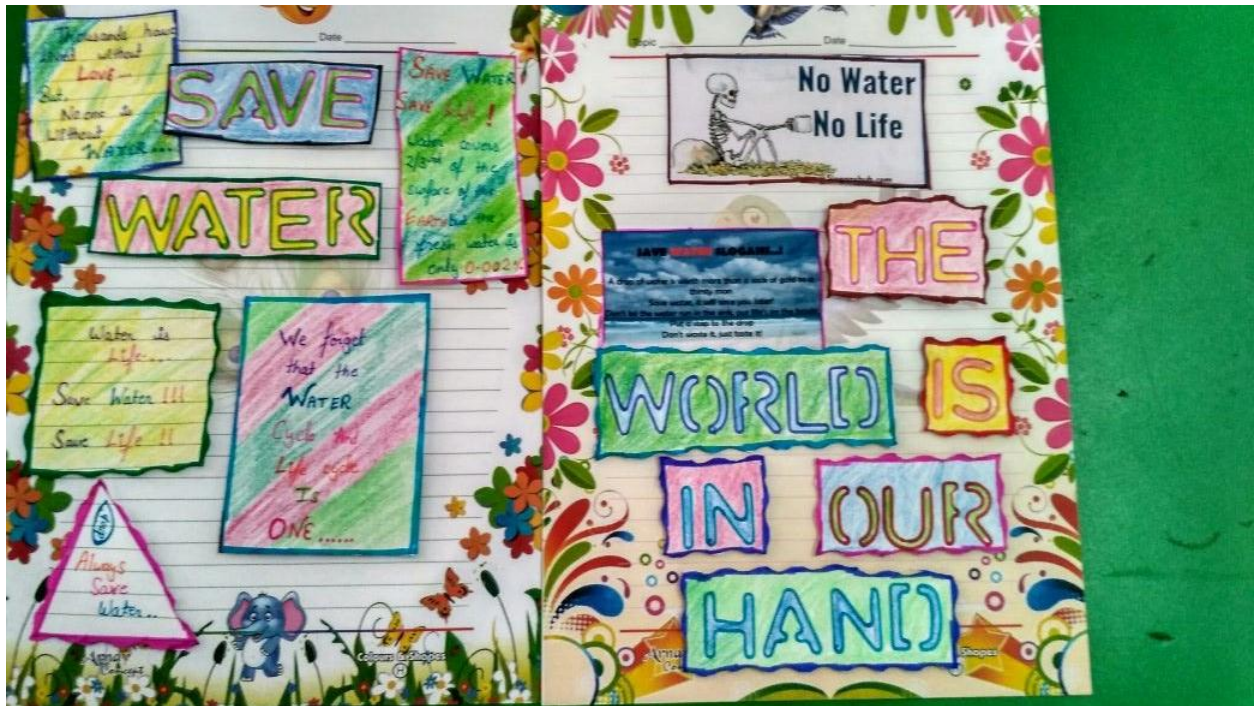 Date
Thousands have
lived without
LOVE...
But,
No one is
Without
WATER...
SAVE
WATER
SAVE WATER
SAVE Life!
Water covers
2/3rd of the
surface of the
EARTH but the
fresh water is
only 0.002%
Water is
Life....
Save Water !!!
Save Life !!
We forget
that the
WATER
Cycle And
Life cycle
Is
ONE......
Always
Save
Water..
Arna
Concept
Colours & Shapes
Topic Date
No Water
No Life
THE
SAVE WATER SLOGANS...!
A drop of water is worth more than a sack of gold to a
thirsty man
Save water, it will save you later!
Don't let the water run in the sink, our life's on the brink!
Put a stop to the drop
Don't waste it, just taste it!
WORLD IS
IN OUR
HAND
Arna
Shapes